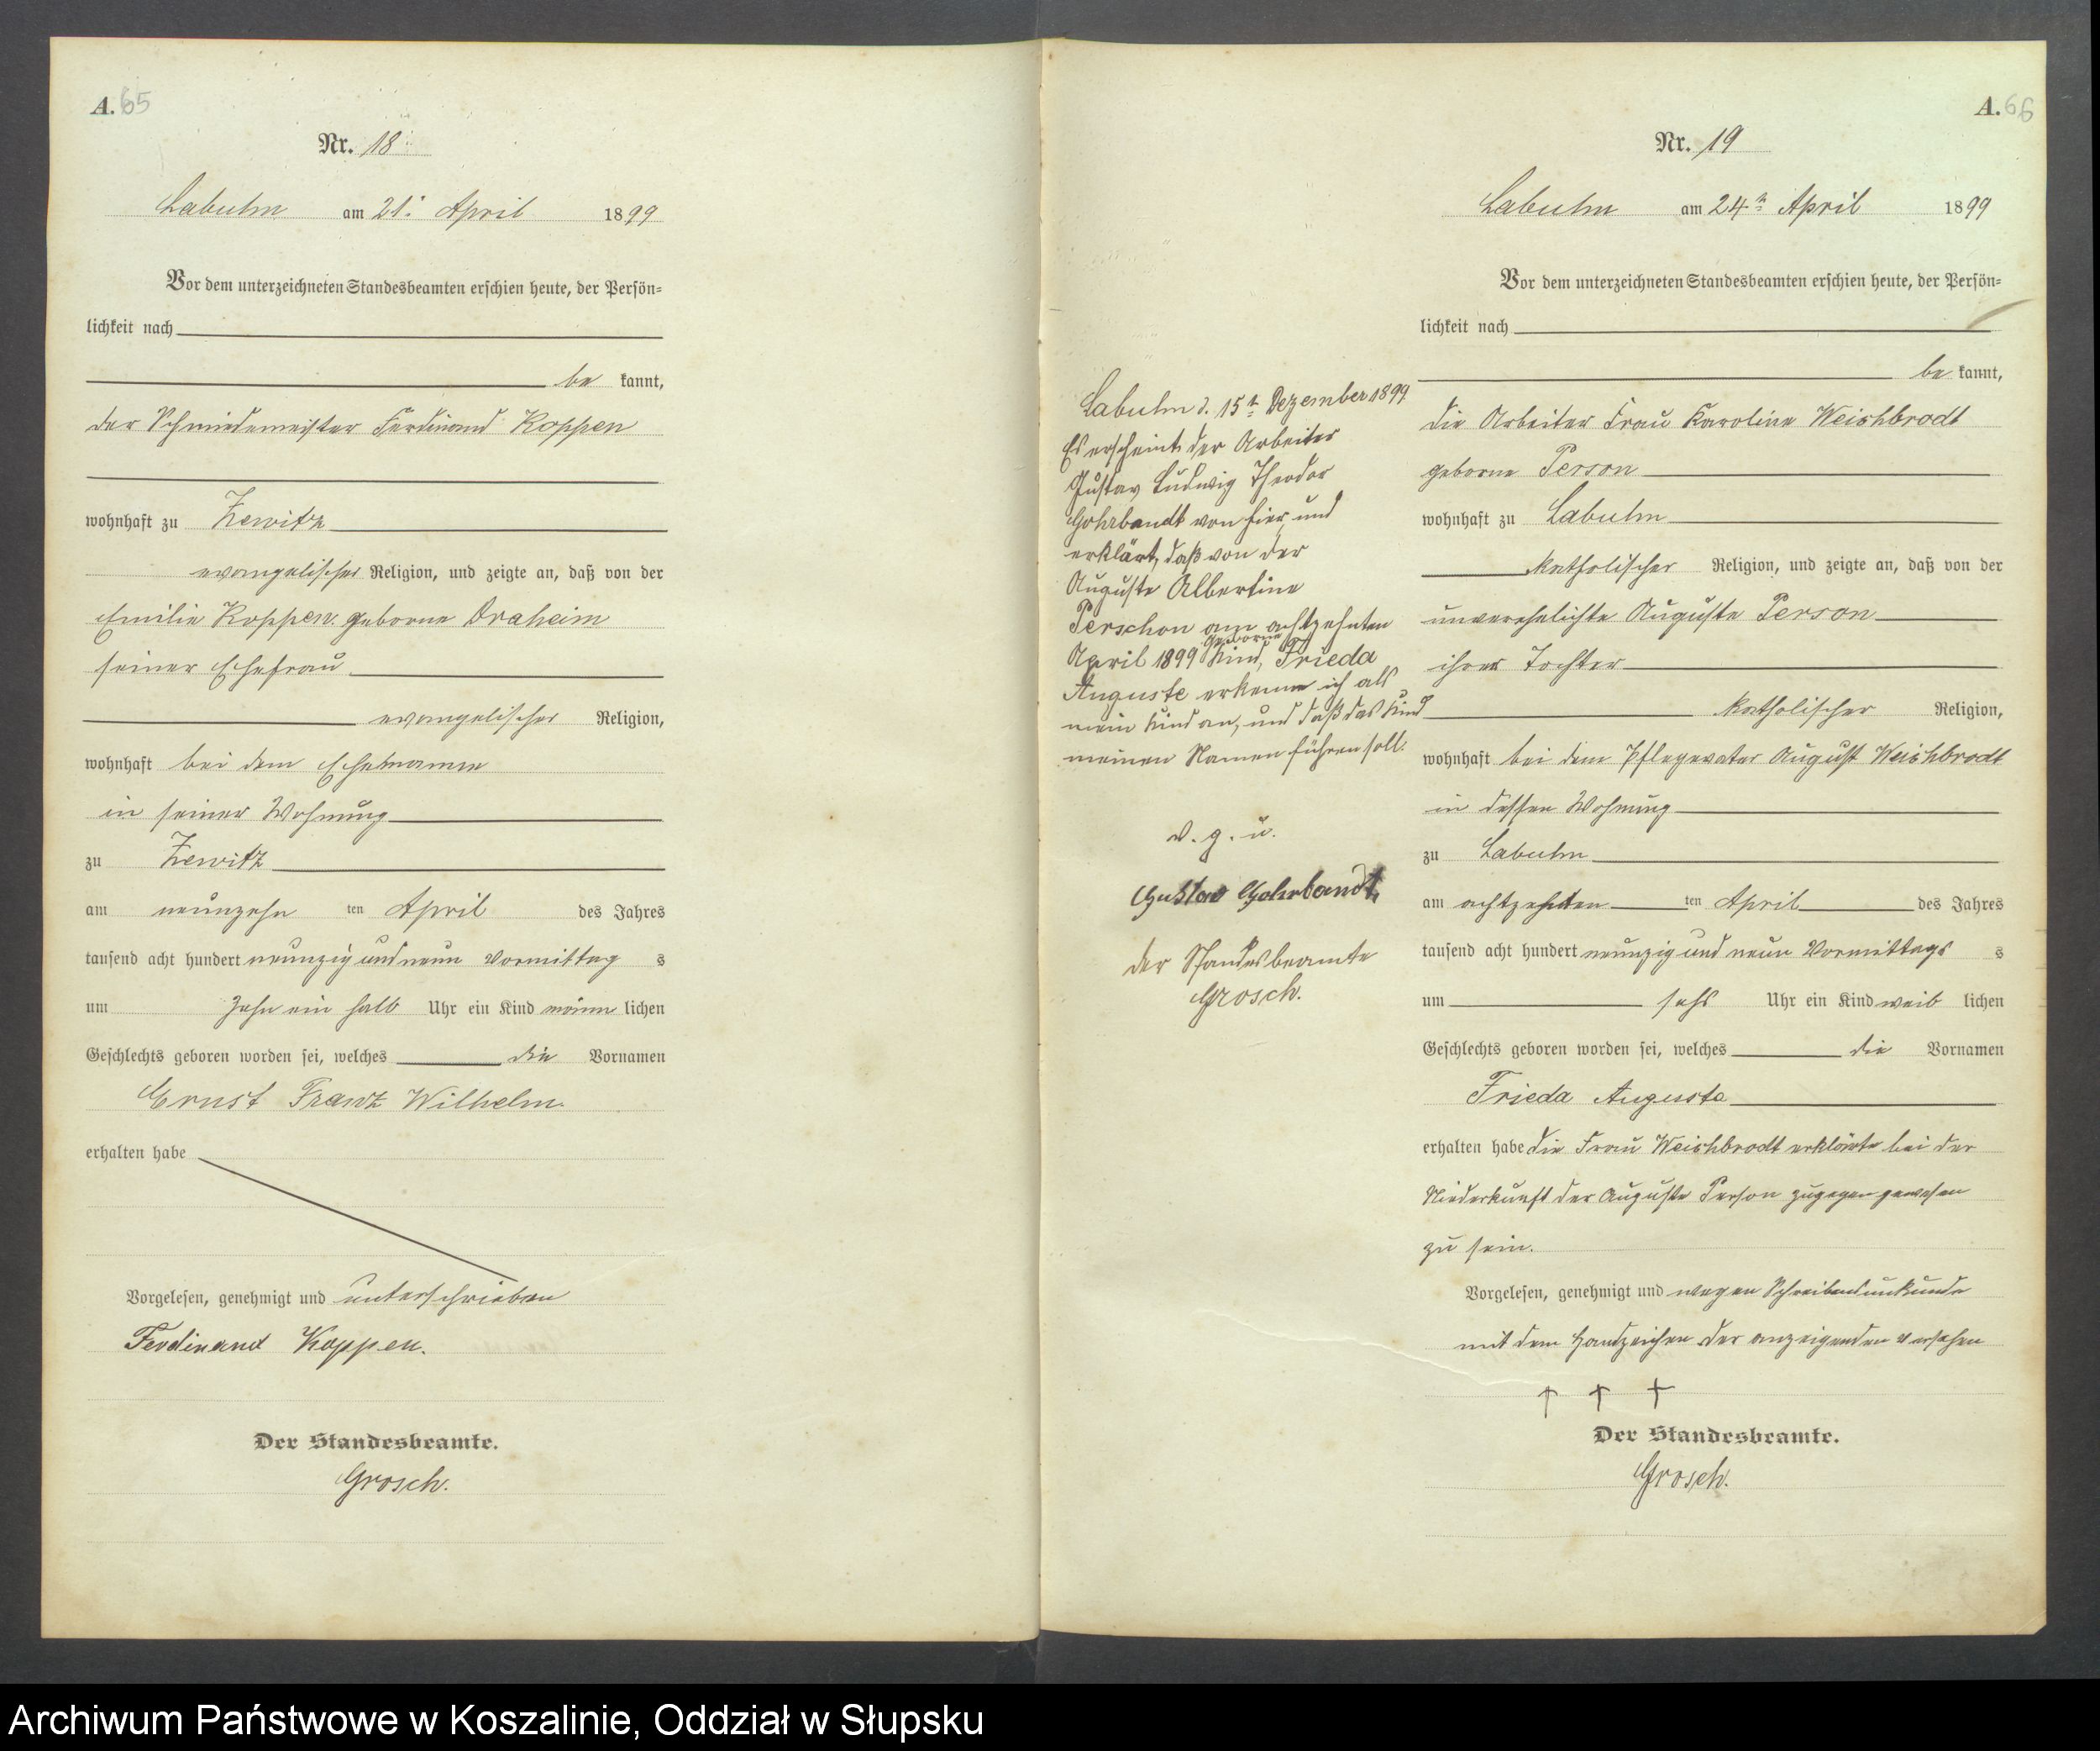 A. 65
Nr. 18
Labuhn am 21. April 1899
Vor dem unterzeichneten Standesbeamten erschien heute, der Persön=
lichkeit nach
be kannt,
der Schmiedemeister Ferdinand Koppen
wohnhaft zu Zewitz
evangelischer Religion, und zeigte an, daß von der
Emilie Koppen geborne Draheim
seiner Ehefrau
evangelischer Religion,
wohnhaft bei dem Ehemanne
in seiner Wohnung
zu Zewitz
am neunzehn ten April des Jahres
tausend acht hundert neunzig und neun Vormittag s
um zehn ein halb Uhr ein Kind männ lichen
Geschlechts geboren worden sei, welches die Vornamen
Ernst Franz Wilhelm
erhalten habe
Vorgelesen, genehmigt und unterschrieben
Ferdinand Koppen.
Der Standesbeamte.
Grosch.
A. 66
Nr. 19
Labuhn am 24ten April 1899
Vor dem unterzeichneten Standesbeamten erschien heute, der Persön=
lichkeit nach
be kannt,
die Arbeiter Frau Karoline Weishbrodt
geborne Person
wohnhaft zu Labuhn
katholischer Religion, und zeigte an, daß von der
unverehelichte Auguste Person
ihrer Tochter
katholischer Religion,
wohnhaft bei dem Pflegevater August Weishbrodt
in dessen Wohnung
zu Labuhn
am achtzehnten ten April des Jahres
tausend acht hundert neunzig und neun Vormittags s
um sechs Uhr ein Kind weib lichen
Geschlechts geboren worden sei, welches die Vornamen
Frieda Auguste
erhalten habe die Frau Weishbrodt erklärte bei der
Niederkunft der Auguste Person zugegen gewesen
zu sein.
Vorgelesen, genehmigt und wegen Schreibensunkunde
mit dem Handzeichen der anzeigenden versehen
† † †
Der Standesbeamte.
Grosch.
Labuhn d. 15t Dezember 1899
Es erscheint der Arbeiter
Gustav Ludwig Theodor
Gohrbandt von hier, und
erklärt, daß von der
Auguste Albertine
Perschon am achtzehnten
April 1899 geborne Kind, Frieda
Auguste erkenne ich als
mein Kind an, und daß das Kind
meinen Namen führen soll.
v. g. u.
Gustav Gohrbandt,
der Standesbeamte
Grosch.
Archiwum Państwowe w Koszalinie, Oddział w Słupsku